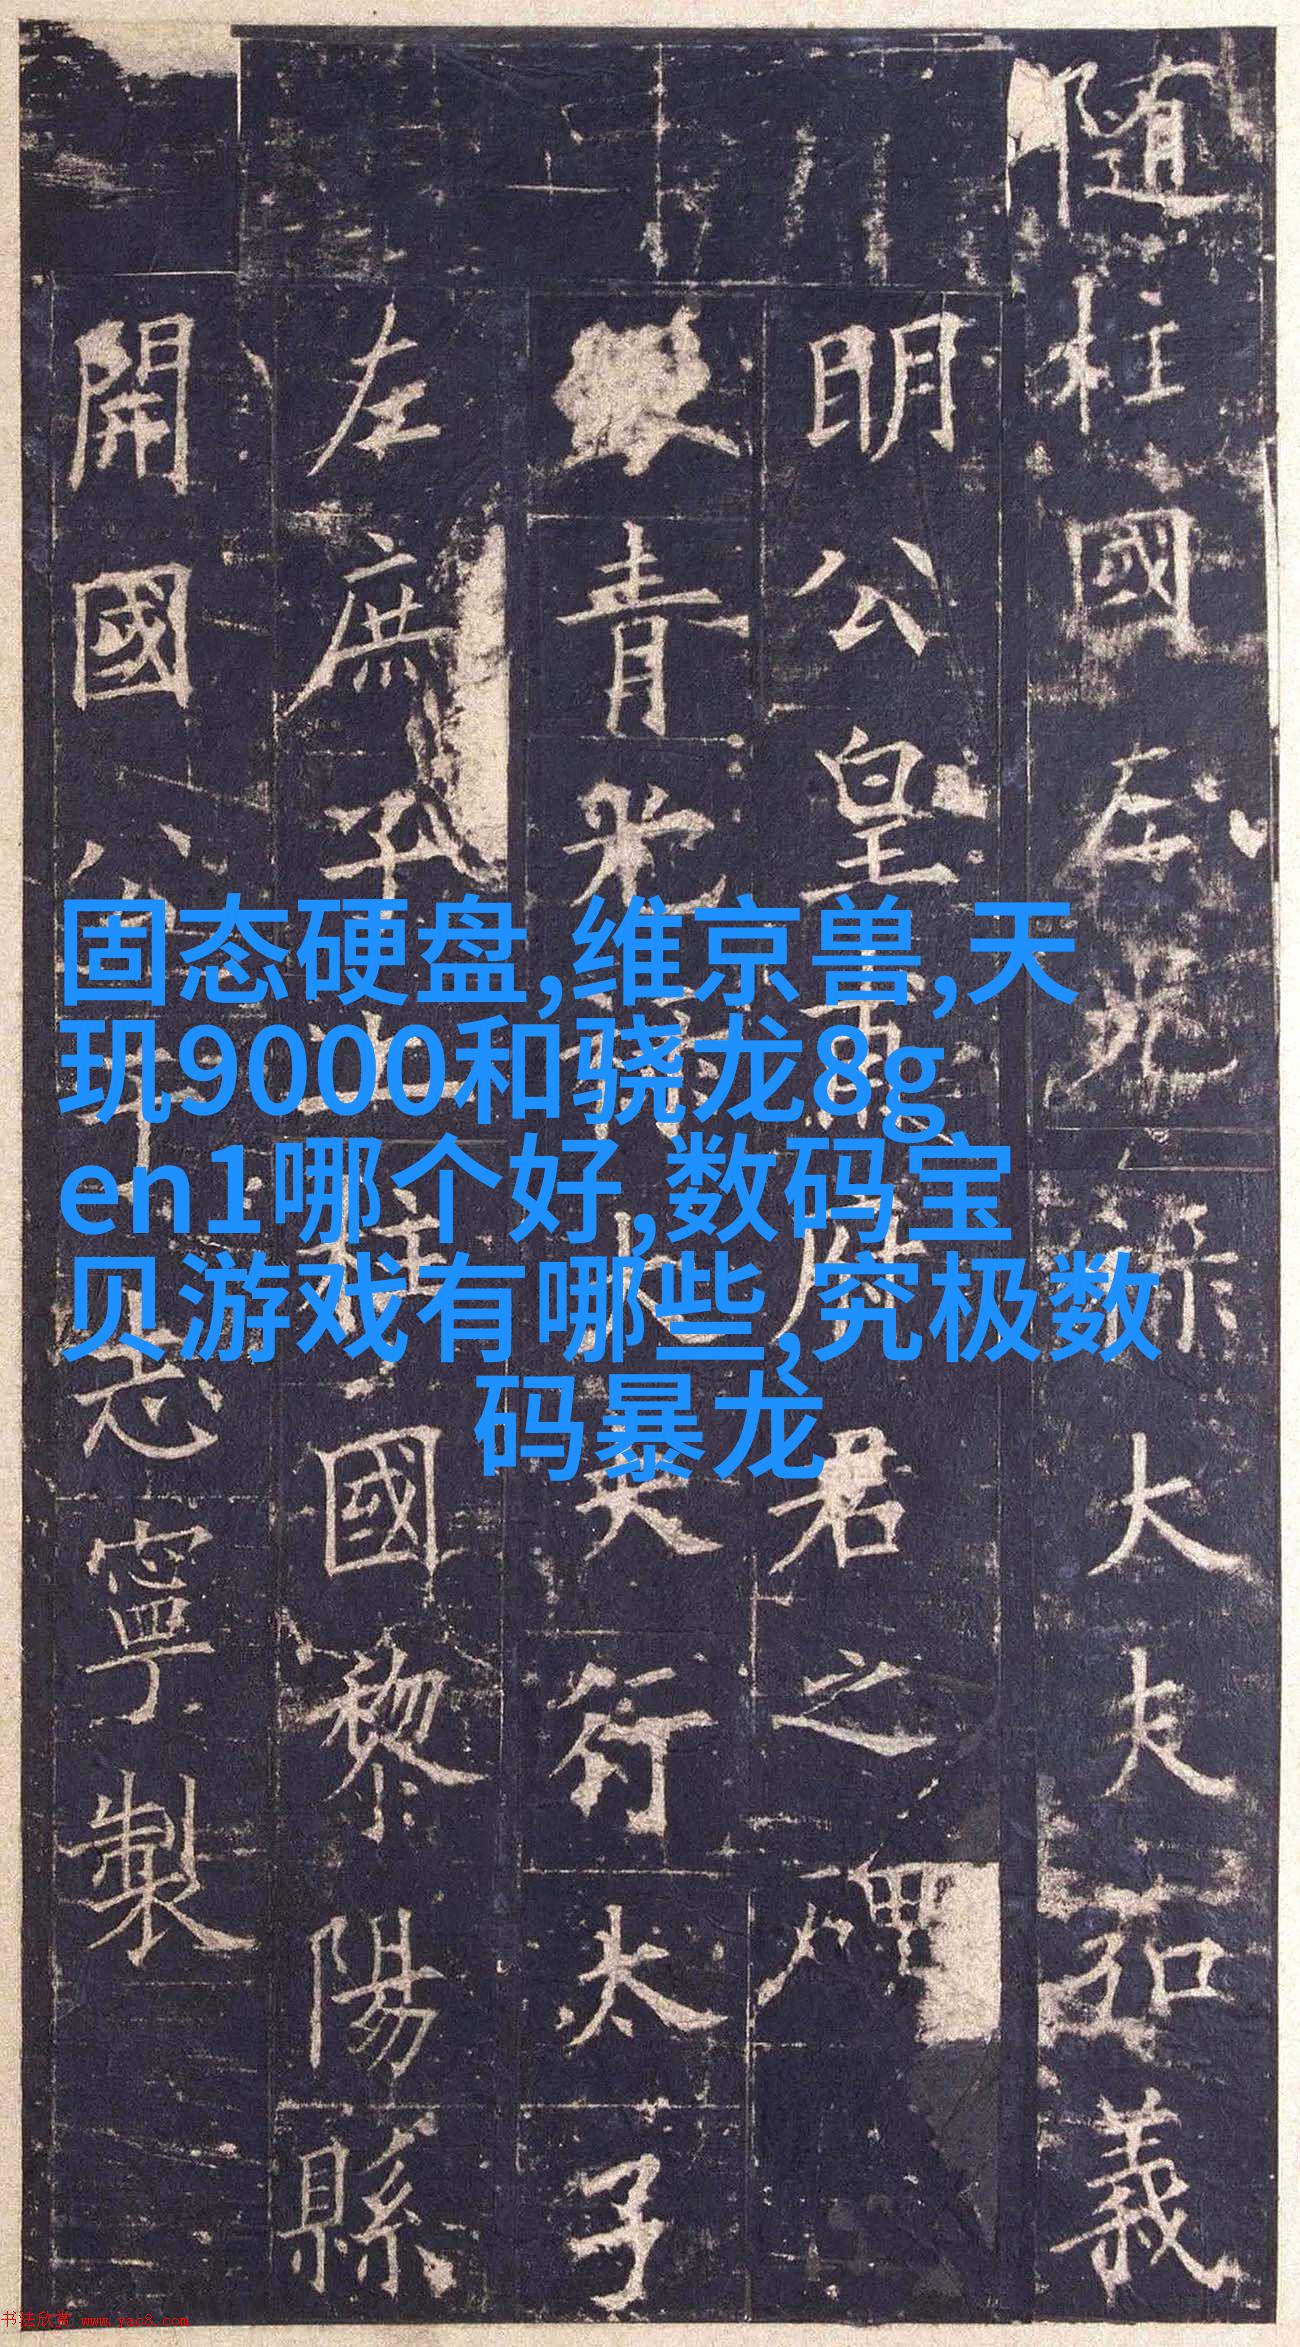 隨柱國左光祿大夫弘義
明公皇甫府君之碑
青光祿大夫行太子
左庶子上柱國黎陽縣
開國公于志寧製
固态硬盘,维京兽,天
玑9000和骁龙8g
en1哪个好,数码宝
贝游戏有哪些,究极数
码暴龙
书法欣赏 www.yac8.com